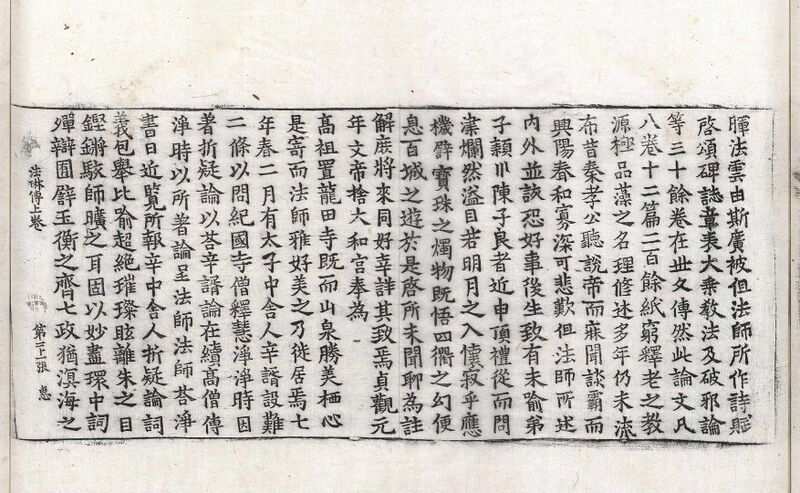 暉法雲由斯廣被但法師所作詩賦
啓頌碑誌章表大乗敎法及破邪論
等三十餘卷在丗文傳然此論文凡
八卷十二篇二百餘紙窮釋老之教
源極品藻之名理修述多年仍未流
布昔秦孝公聽說帝而寐聞談霸而
興陽春和寡深可悲歎但法師所述
内外並該恐好事後生致有未喻弟
子潁川陳子良者近申頂禮從而問
津爛然溢目若明月之入懷寂乎應
機譬寶珠之燭物既悟四衢之幻便
息百城之遊於是啓所未聞聊為註
解庶將來同好幸詳其致焉貞觀元
年文帝捨大和宮奉為
高祖置龍田寺既而山泉勝美栖心
是寄而法師雅好美之乃徙居焉七
年春二月有太子中舍人辛諝設難
二條以問紀國寺僧釋慧淨淨時因
著折疑論以荅辛諝論在續高僧傳
淨時以所著論呈法師法師荅淨
書曰近覽所報辛中舍人折疑論詞
義包舉比喻超絶璀璨眩離朱之目
鏗鏘駭師曠之耳固以妙盡環中詞
殫辯囿譬玉衡之齊七政猶溟海之
法琳傳上卷 第三上張 惠